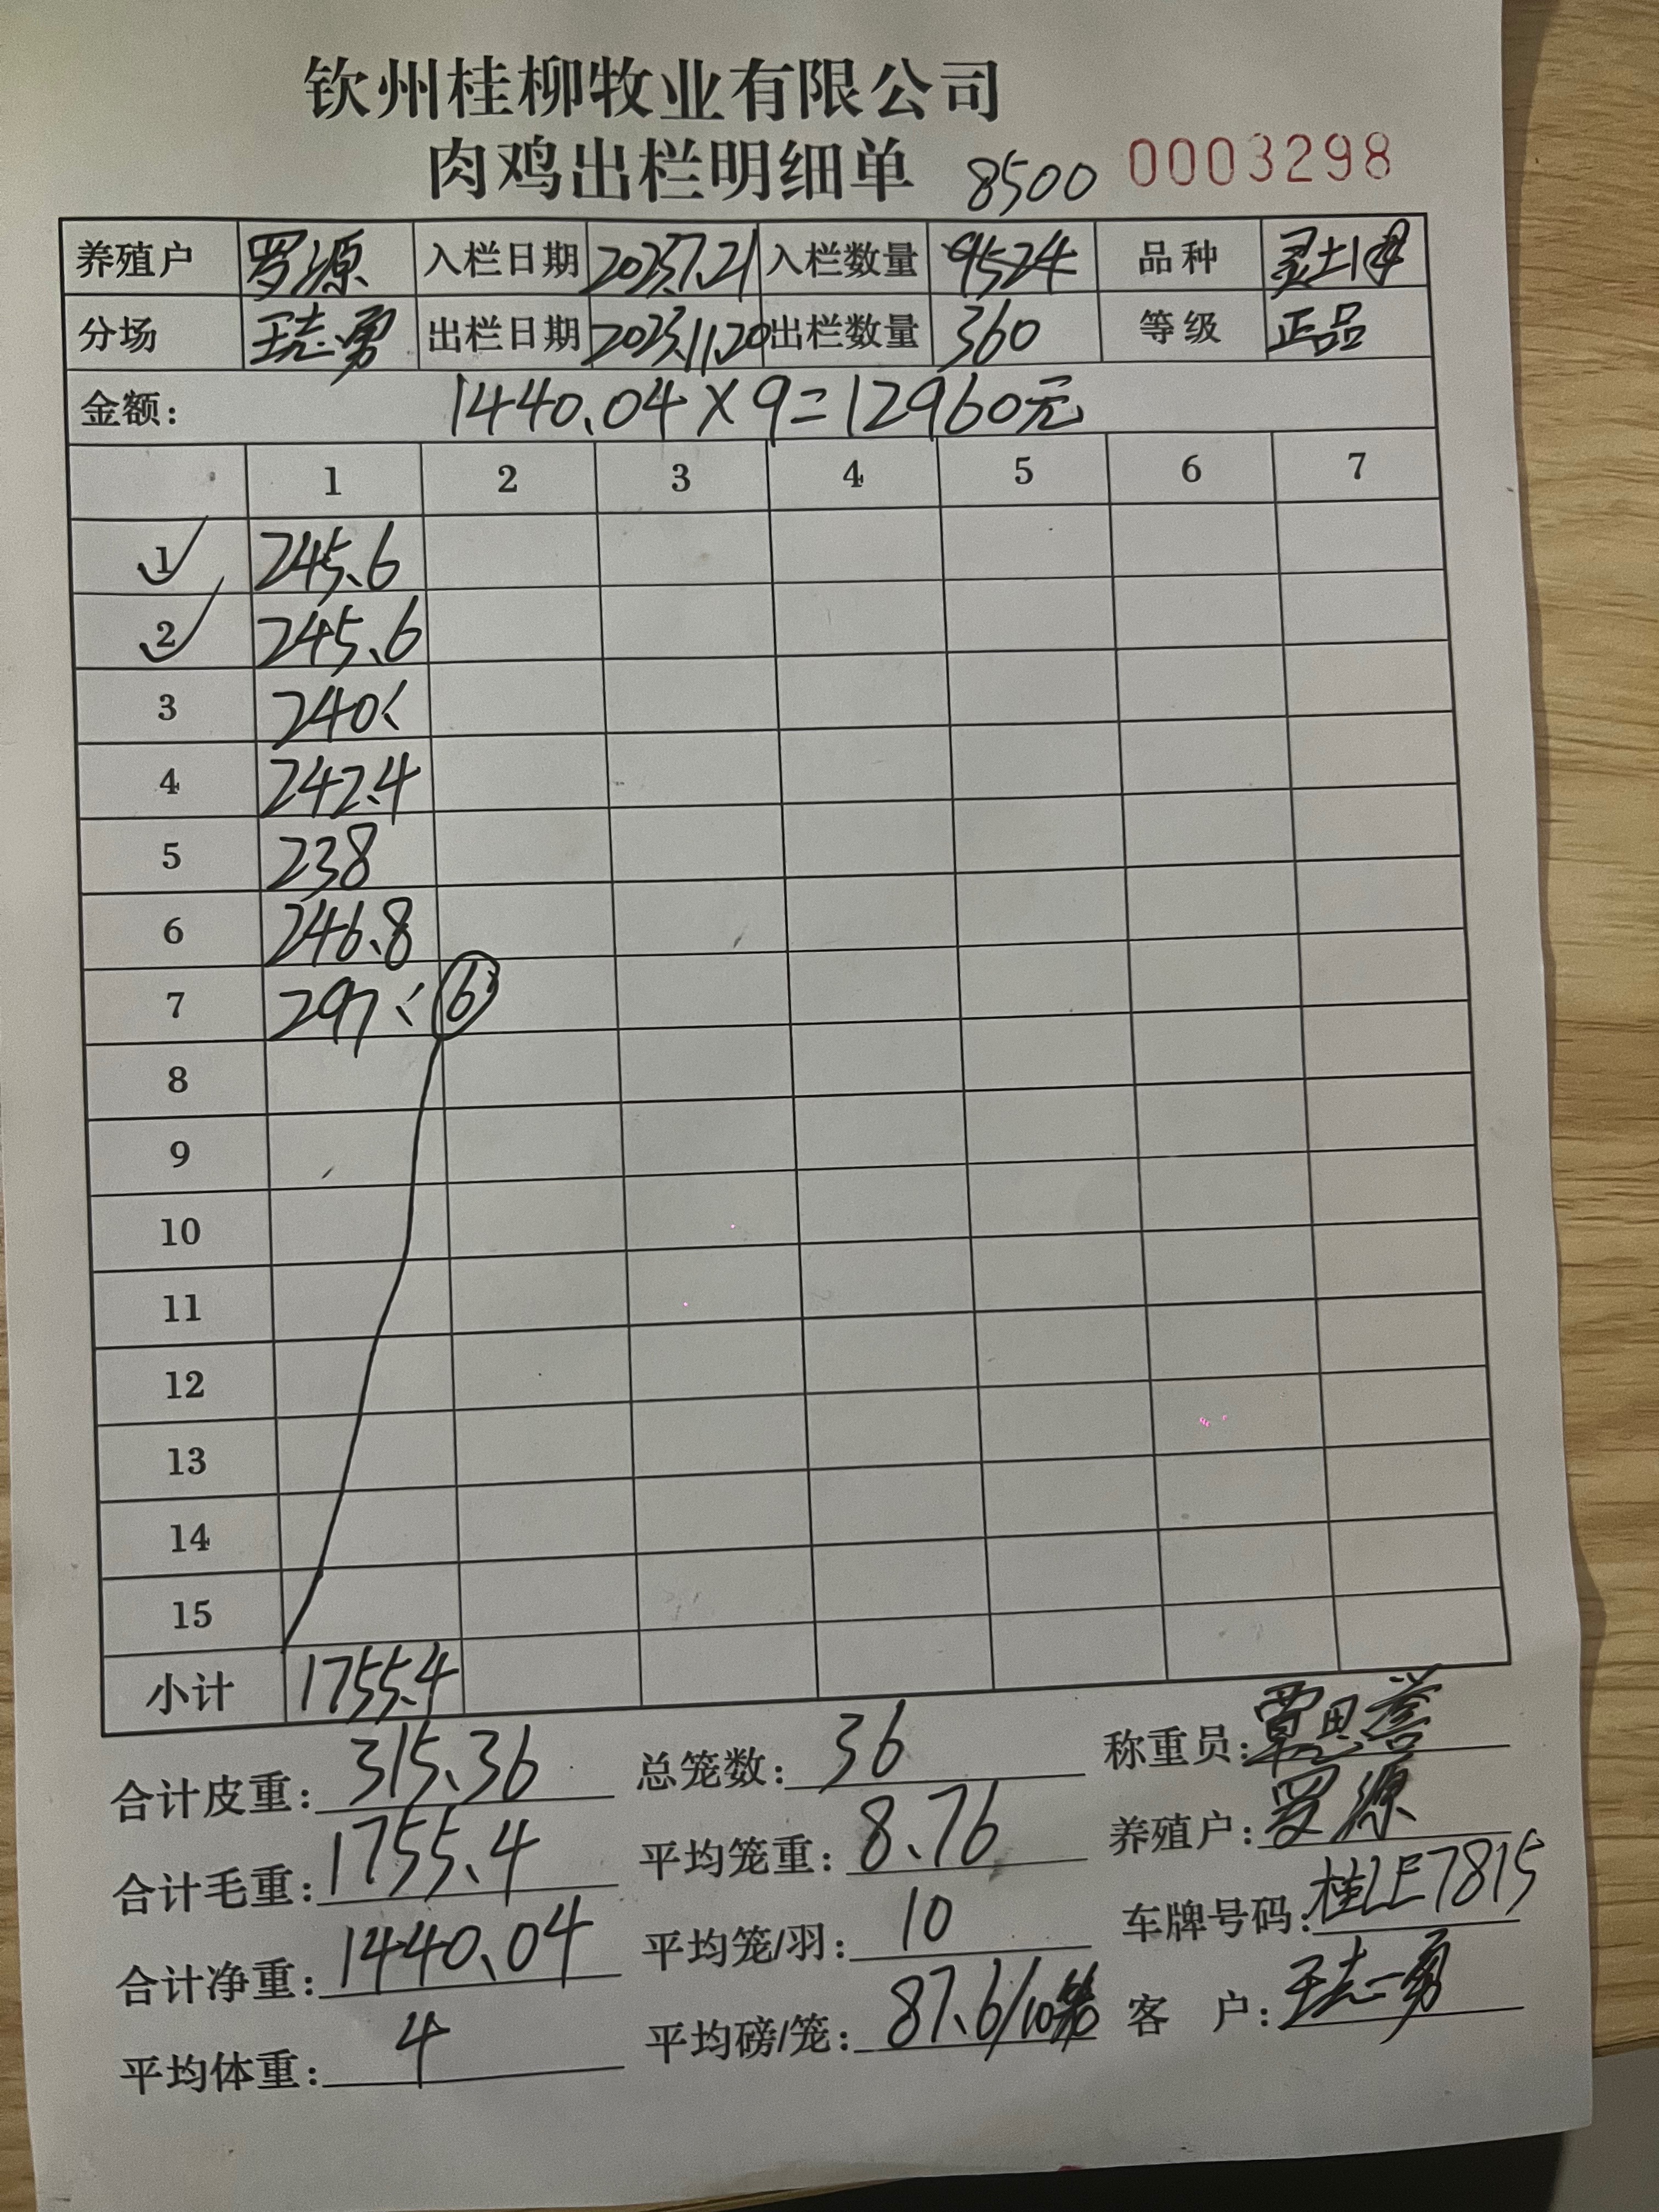 钦州桂柳牧业有限公司
肉鸡出栏明细单 8500 0003298
养殖户 罗源 入栏日期 2023.7.21 入栏数量 9524 品种 灵土1号
分场 王志勇 出栏日期 2023.11.20 出栏数量 360 等级 正品
金额: 1440.04×9=12960元
1 2 3 4 5 6 7
1 245.6
2 245.6
3 240
4 242.4
5 238
6 246.8
7 297 6
8
9
10
11
12
13
14
15
小计 1755.4
合计皮重: 315.36 总笼数: 36 称重员: 覃思誉
合计毛重: 1755.4 平均笼重: 8.76 养殖户: 罗源
合计净重: 1440.04 平均笼/羽: 10 车牌号码: 桂LE7815
平均体重: 4 平均磅/笼: 87.6/10 客户: 王志勇